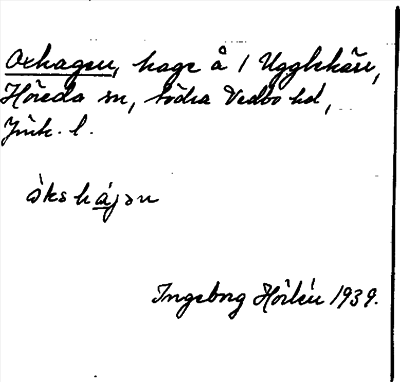 Oxhagen, hage å 1 Ugglekärr,
Höreda sn, Södra Vedbo hd,
Jönk. l.
òkshájən
Ingeborg Hörlén 1939.